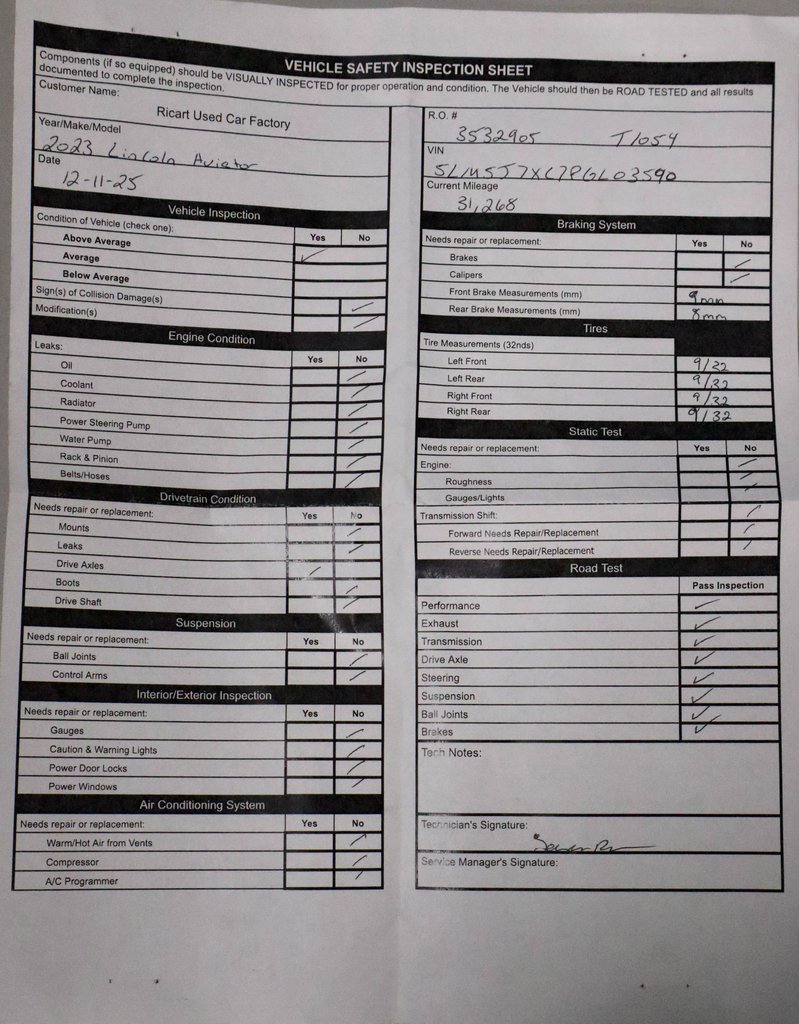 VEHICLE SAFETY INSPECTION SHEET
Components (if so equipped) should be VISUALLY INSPECTED for proper operation and condition. The Vehicle should then be ROAD TESTED and all results
documented to complete the inspection.
Customer Name:
Ricart Used Car Factory
Year/Make/Model
2023 Lincoln Aviator
Date
12-11-25
Vehicle Inspection
Condition of Vehicle (check one): Yes No
Above Average
Average ✓
Below Average
Sign(s) of Collision Damage(s) ✓
Modification(s) ✓
Engine Condition
Leaks: Yes No
Oil ✓
Coolant ✓
Radiator ✓
Power Steering Pump ✓
Water Pump ✓
Rack & Pinion ✓
Belts/Hoses ✓
Drivetrain Condition
Needs repair or replacement: Yes No
Mounts ✓
Leaks ✓
Drive Axles ✓
Boots ✓
Drive Shaft ✓
Suspension
Needs repair or replacement: Yes No
Ball Joints ✓
Control Arms ✓
Interior/Exterior Inspection
Needs repair or replacement: Yes No
Gauges ✓
Caution & Warning Lights ✓
Power Door Locks ✓
Power Windows ✓
Air Conditioning System
Needs repair or replacement: Yes No
Warm/Hot Air from Vents ✓
Compressor ✓
A/C Programmer ✓
R.O. #
3532905 T1054
VIN
5LM5J7XC7PGL03590
Current Mileage
31,268
Braking System
Needs repair or replacement: Yes No
Brakes ✓
Calipers ✓
Front Brake Measurements (mm) 9mm
Rear Brake Measurements (mm) 8mm
Tires
Tire Measurements (32nds)
Left Front 9/32
Left Rear 9/32
Right Front 9/32
Right Rear 9/32
Static Test
Needs repair or replacement: Yes No
Engine: ✓
Roughness ✓
Gauges/Lights
Transmission Shift: ✓
Forward Needs Repair/Replacement ✓
Reverse Needs Repair/Replacement ✓
Road Test
Pass Inspection
Performance ✓
Exhaust ✓
Transmission ✓
Drive Axle ✓
Steering ✓
Suspension ✓
Ball Joints ✓
Brakes ✓
Tech Notes:
Technician's Signature:
Service Manager's Signature: